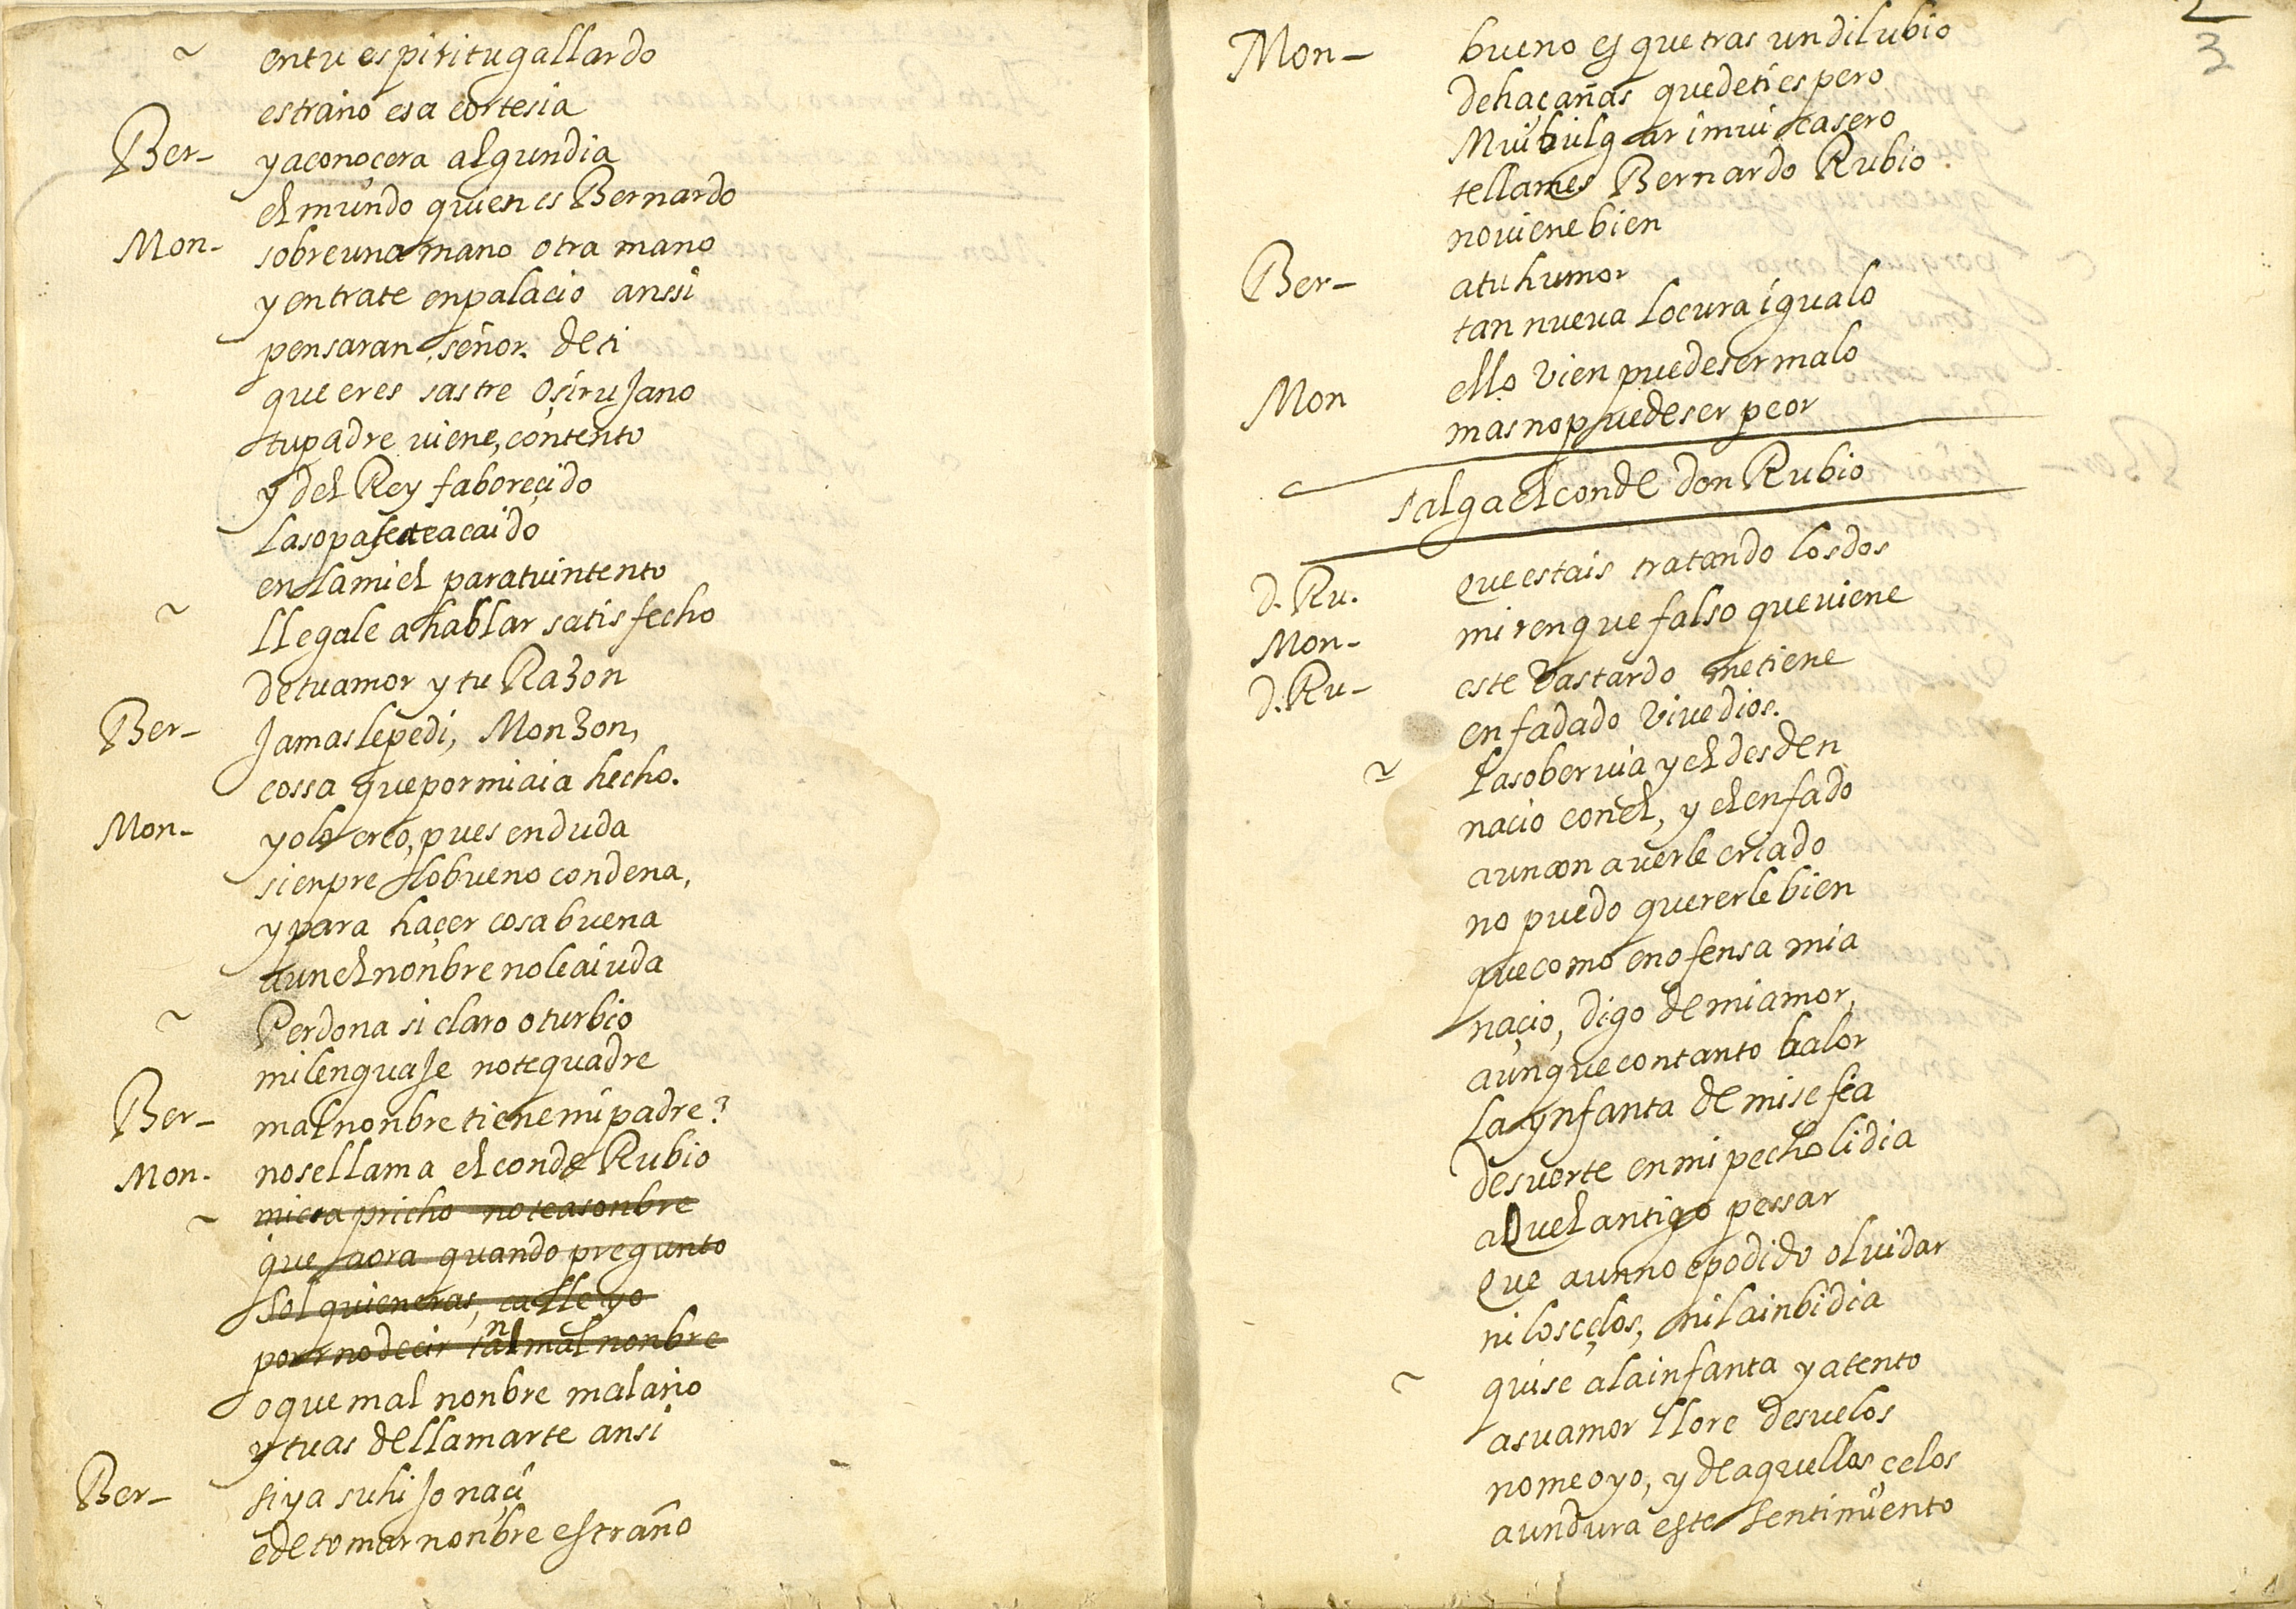 ~ entu espiritu gallardo
estraño esa cortesia
Ber- ya conoçera algun dia
el mundo quien es Bernardo
Mon- sobre una mano otra mano
y entrate en palacio anssi
pensaran señor de ti
que eres sastre o çirujano
tu padre viene, contento
y del Rey faboreçido
la sopa se te a caido
en la miel para tu intento
~ llegale a hablar satisfecho
de tu amor y tu Razon
Ber- Jamas le pedi, Monzon,
cossa que por mi aia hecho.
Mon- yo lo creo, pues en duda
sienpre lo bueno condena,
y para haçer cosa buena
aun el nonbre no le aiuda
~ Perdona si claro o turbio
mi lenguaje no te quadre
Ber- mal nonbre tiene mi padre?
Mon. no se llama el conde Rubio
~ mi capricho no te asonbre
que aora quando pregunto
Sol quien eras, calle yo
por no decir tan mal nonbre
o que mal nonbre mal año
y tu as de llamarte ansi
Ber- si ya su hijo naçi
e de tomar nonbre estraño
2
3
Mon- bueno es que tras un dilubio
de haçañas que de ti espero
Mui bulgar i mui casero
te llames Bernardo Rubio
no viene bien
Ber- a tu humor
tan nueva locura igualo
Mon ello bien puede ser malo
mas no puede ser peor
salga el conde don Rubio
d. Ru. Que estais tratando los dos
Mon- miren que falso que viene
d. Ru- este bastardo me tiene
enfadado vive dios.
~ la sobervia y el desden
naçio con el, y el enfado
aun con averle criado
no puedo quererle bien
que como en ofensa mia
naçio, digo de mi amor,
aunque con tanto balor
la ynfanta de mi se fia
de suerte en mi pecho lidia
aquel antigo pessar
Que aun no e podido olvidar
ni los çelos, ni la inbidia
~ quise a la infanta y atento
a su amor llore desvelos
no me oyo, y de aquellos çelos
aun dura este sentimiento